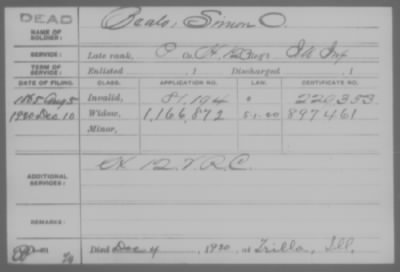 DEAD
NAME OF SOLDIER: Beals, Simon O.
SERVICE: Late rank, P Co. H, 123 Reg't Ill Inf
TERM OF SERVICE: Enlisted , 1 Discharged , 1
DATE OF FILING. CLASS. APPLICATION NO. LAW. CERTIFICATE NO.
1865 Aug 5 Invalid, 81,194 220353
1920 Dec. 10 Widow, 1,166,872 5-1-20 897461
Minor,
ADDITIONAL SERVICES: 12 V.R.C.
REMARKS:
Died Dec 4, 1920, at Trilla, Ill,